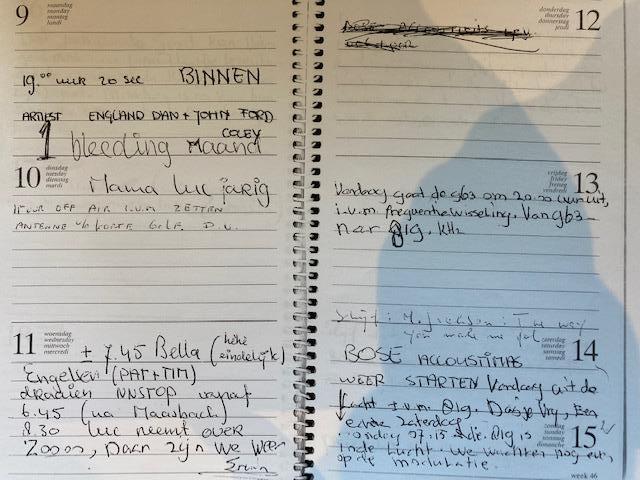 9
maandag
monday
montag
lundi
19.00 uur 20 sec BINNEN
ARTIEST ENGLAND DAN + JOHN FORD
COLEY
1 bleeding Maand
10
dinsdag
tuesday
dienstag
mardi
Mama Luc jarig
UUR OFF AIR I.V.M ZETTEN
ANTENNE KORTE GOLF D.V.
11
woensdag
wednesday
mittwoch
mercredi
± 7.45 Bella (hèhè
eindelijk)
Engelsen (PAT+TIM)
draaien NNSTOP vanaf
6.45 (na Maasbach)
8.30 Luc neemt over
Zoooo, Daar zijn we weer
12
donderdag
thursday
donnerstag
jeudi
week 46
13
vrijdag
friday
freitag
vendredi
Vandaag gaat de 963 om 20.00 uur uit,
i.v.m frequentiewisseling. Van 963 -
nar 819. kHz
The way
you make me feel
14
zaterdag
saturday
samstag
samedi
BOSE ACCOUSTIMAS
WEER STARTEN Vandaag uit de
lucht i.v.m. 819. Dasje Vry, Een
zaterdag
15
zondag
sunday
sonntag
dimanche
zondag 07.15 de 819 is
in de lucht. We wachten nog even,
op de modulatie.
week 46